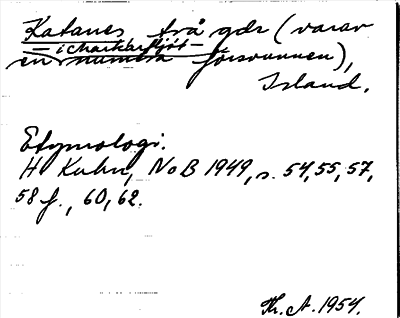 Katanes två gdr (varav
en numera försvunnen),
Island.
Etymologi.
H Kuhn, NoB 1949, s. 54, 55, 57,
58 f., 60, 62.
Th. A. 1954.